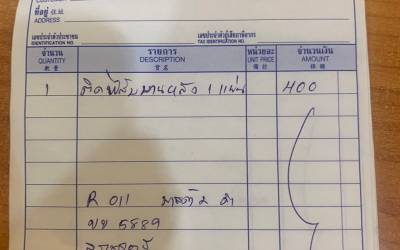 ที่อยู่
ADDRESS
เลขประจำตัวประชาชน
IDENTIFICATION NO.
เลขประจำตัวผู้เสียภาษีอากร
TAX IDENTIFICATION NO.
จำนวน รายการ หน่วยละ จำนวนเงิน
QUANTITY DESCRIPTION UNIT PRICE AMOUNT
1 ติดฟิล์มบานหลัง 1 แผ่น 400
R 011 ดำ
ขข 5889